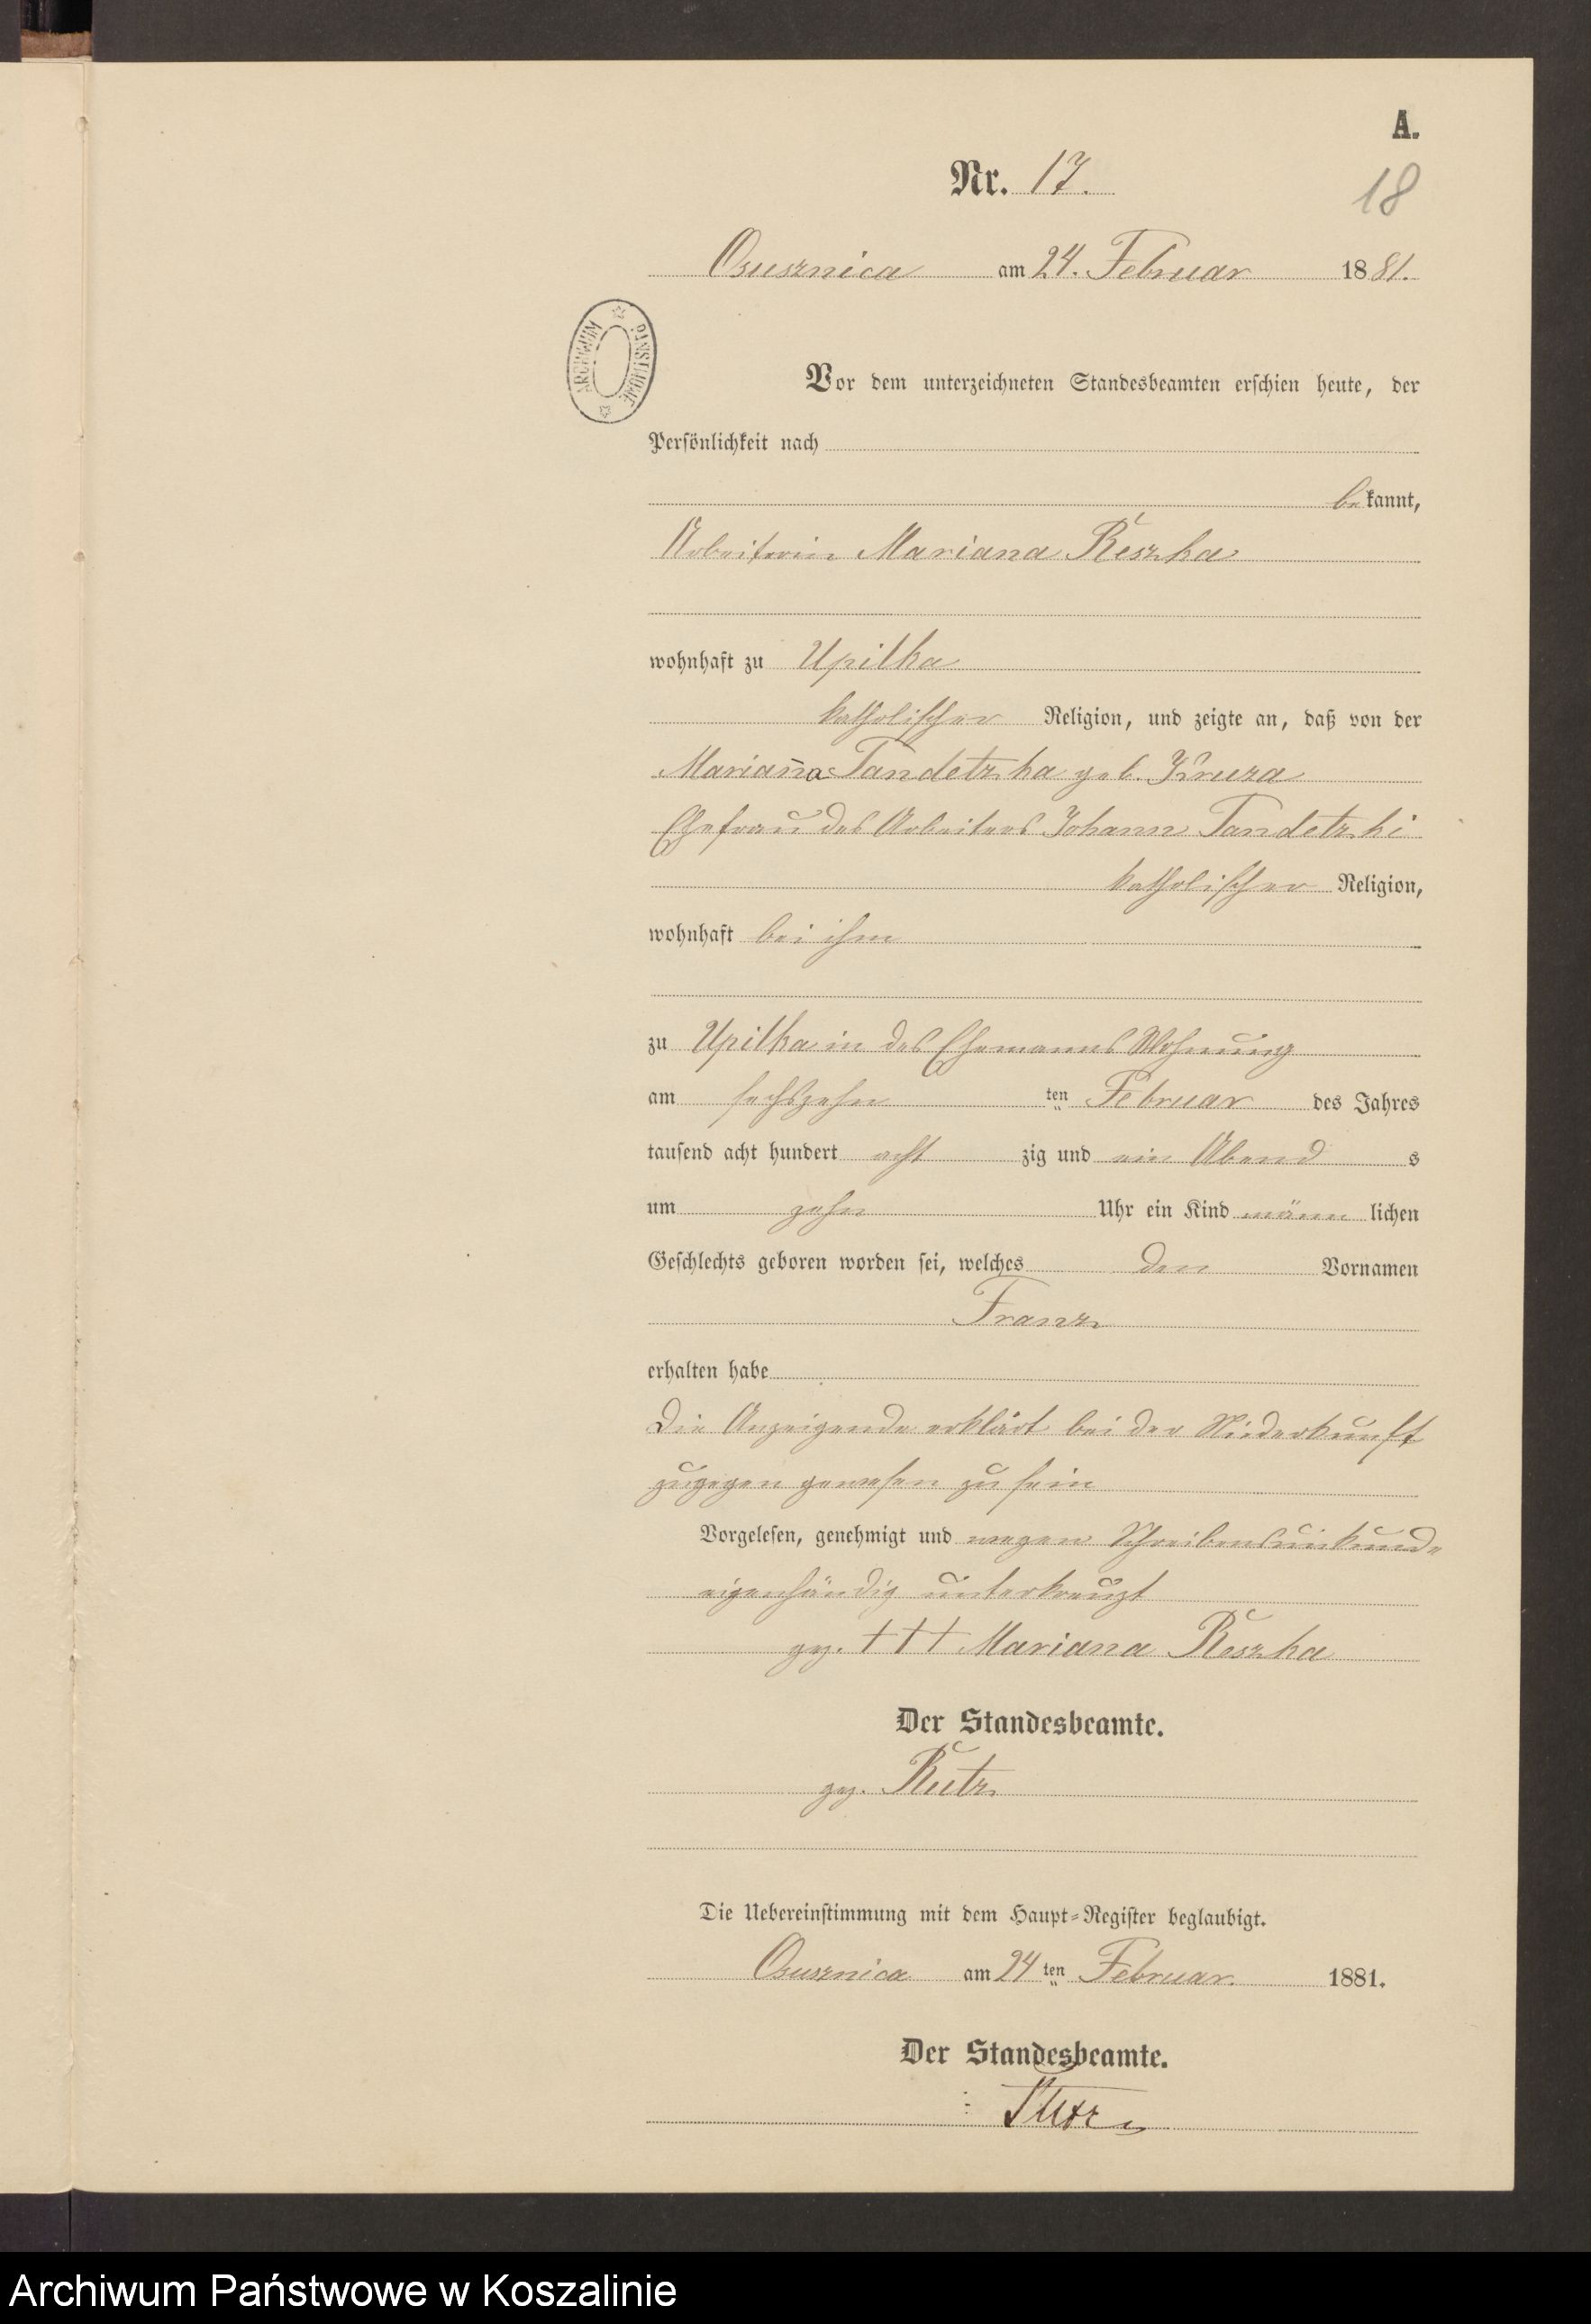 A.
Nr. 17.
18
Osusznica am 24. Februar 1881.
ARCHIWUM PAŃSTWOWE
Vor dem unterzeichneten Standesbeamten erschien heute, der
Persönlichkeit nach
bekannt,
Arbeiterin Mariana Reszka
wohnhaft zu Upilka
katholischer Religion, und zeigte an, daß von der
Marianna Tandetzka geb. Kruza
Ehefrau des Arbeiters Johann Tandetzki
katholischer Religion,
wohnhaft bei ihm
zu Upilka in des Ehemanns Wohnung
am sechszehn ten Februar des Jahres
tausend acht hundert acht zig und ein Abend s
um zehn Uhr ein Kind männ lichen
Geschlechts geboren worden sei, welches den Vornamen
Franz
erhalten habe
Die Anzeigende erklärt bei der Niederkunft
zugegen gewesen zu sein
Vorgelesen, genehmigt und wegen Schreibensunkunde
eigenhändig unterkreuzt
gez. +++ Mariana Reszka
Der Standesbeamte.
gez. Rutz
Die Uebereinstimmung mit dem Haupt-Register beglaubigt.
Osusznica am 24 ten Februar. 1881.
Der Standesbeamte.
Rutz
Archiwum Państwowe w Koszalinie